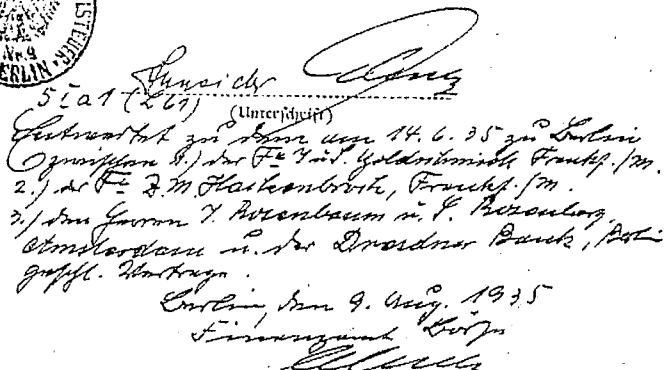 STEUER
Nr. 9
BERLIN
5 I a 1 (261)
(Unterschrift)
Entwertet zu dem am 14.6.35 zu Berlin
zwischen 1.) der Fa J. u. S. Goldschmidt Frankf./M.
2.) der Fa Z. M. Hackenbroch, Frankf./M.
3.) den Herren J. Rosenbaum u. S. Rosenberg
Amsterdam u. der Dresdner Bank, Berlin
geschl. Vertrage.
Berlin, den 9. Aug. 1935
Finanzamt Börse